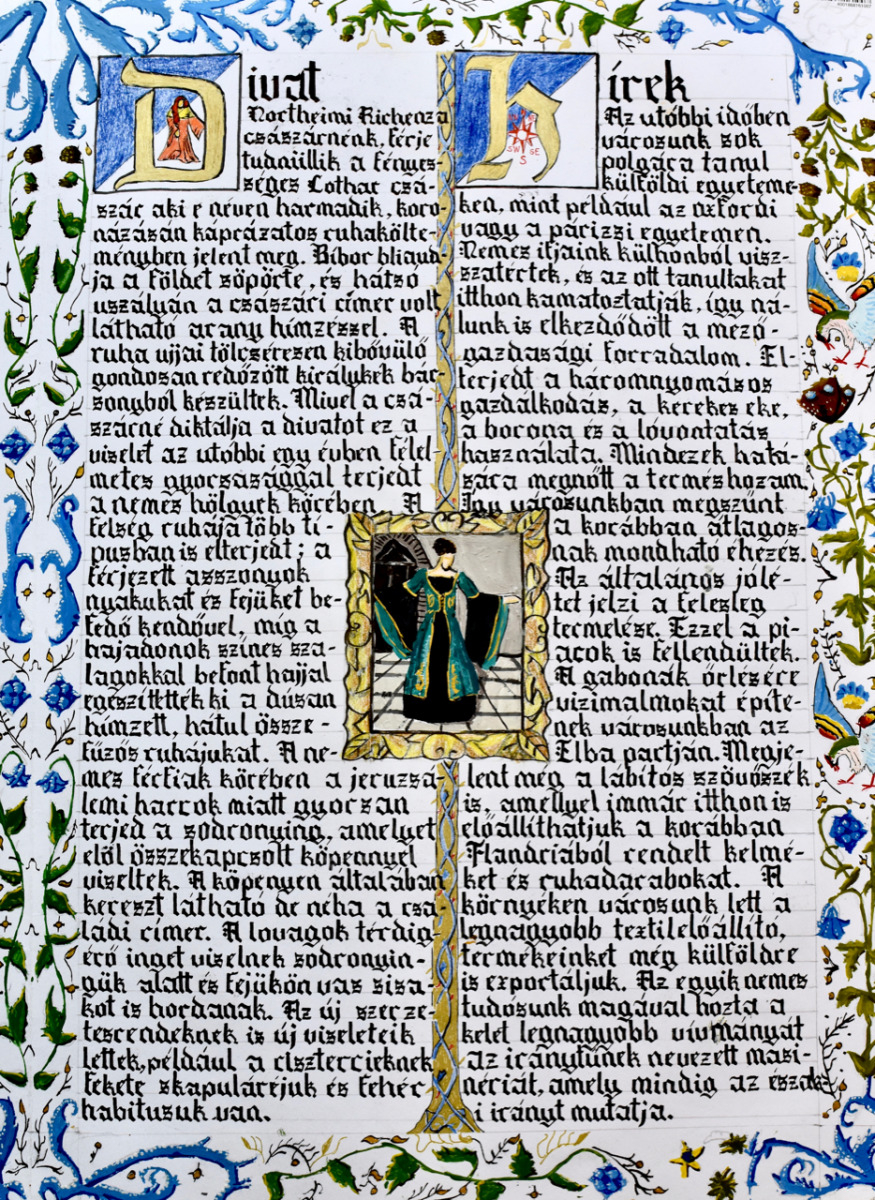 Divat
Northeimi Richenza
császárnénk, férje
tudniillik a fényes-
séges Lothar csá-
szár aki e néven harmadik, koro-
názásán káprázatos ruhakölte-
ményben jelent meg. Bíbor bliaud-
ja a földet söpörte, és hátsó
uszályán a császári címer volt
látható arany hímzéssel. A
ruha ujjai tölcséresen kibővülő
gondosan redőzött királykék bár-
songból készültek. Mivel a csá-
szárné diktálja a divatot ez a
viselet az utóbbi egy évben félel-
metes gyorsasággal terjedt
a nemes hölgyek körében. A
felség ruhája több tí-
pusban is elterjedt; a
férjezett asszonyok
nyakukat és fejüket be-
fedő kendővel, míg a
hajadonok színes sza-
lagokkal befont hajjal
egészítették ki a dúsan
hímzett, hátul össze-
fűzős ruhájukat. A ne-
mes férfiak körében a jeruzsá-
lemi harcok miatt gyorsan
terjed a sodronying, amelyet
elöl összekapcsolt köpennyel
viseltek. A köpenyen általában
kereszt látható de néha a csa-
ládi címer. A lovagok térdig
érő inget viselnek sodronyin-
gük alatt és fejükön vas sisa-
kot is hordanak. Az új szerze-
tesrendeknek is új viseleteik
lettek, például a cisztercieknek
fekete skapuláréjuk és fehér
habitusuk van.
Hírek
Az utóbbi időben
városunk sok
polgára tanul
külföldi egyeteme-
ken, mint például az oxfordi
vagy a párizsi egyetemen.
Nemes ifjaink külhonból visz-
szatértek, és az ott tanultakat
itthon kamatoztatják, így ná-
lunk is elkezdődött a mező-
gazdasági forradalom. El-
terjedt a háromnyomásos
gazdálkodás, a kerekes eke,
a borona és a lóvontatás
használata. Mindezek hatá-
sára megnőtt a terméshozam.
Így városunkban megszűnt
a korábban átlagos-
nak mondható éhezés.
Az általános jólé-
tet jelzi a felesleg
termelése. Ezzel a pi-
acok is fellendültek.
A gabonák őrlésére
vízimalmokat építe-
nek városunkban az
Elba partján. Megje-
lent még a lábítós szövőszék
is, amellyel immár itthon is
előállíthatjuk a korábban
Flandriából rendelt kelmé-
ket és ruhadarabokat. A
környéken városunk lett a
legnagyobb textilelőállító,
termékeinket még külföldre
is exportáljuk. Az egyik nemes
tudósunk magával hozta a
kelet legnagyobb vívmányát
az iránytűnek nevezett masi-
nériát, amely mindig az észak-
i irányt mutatja.